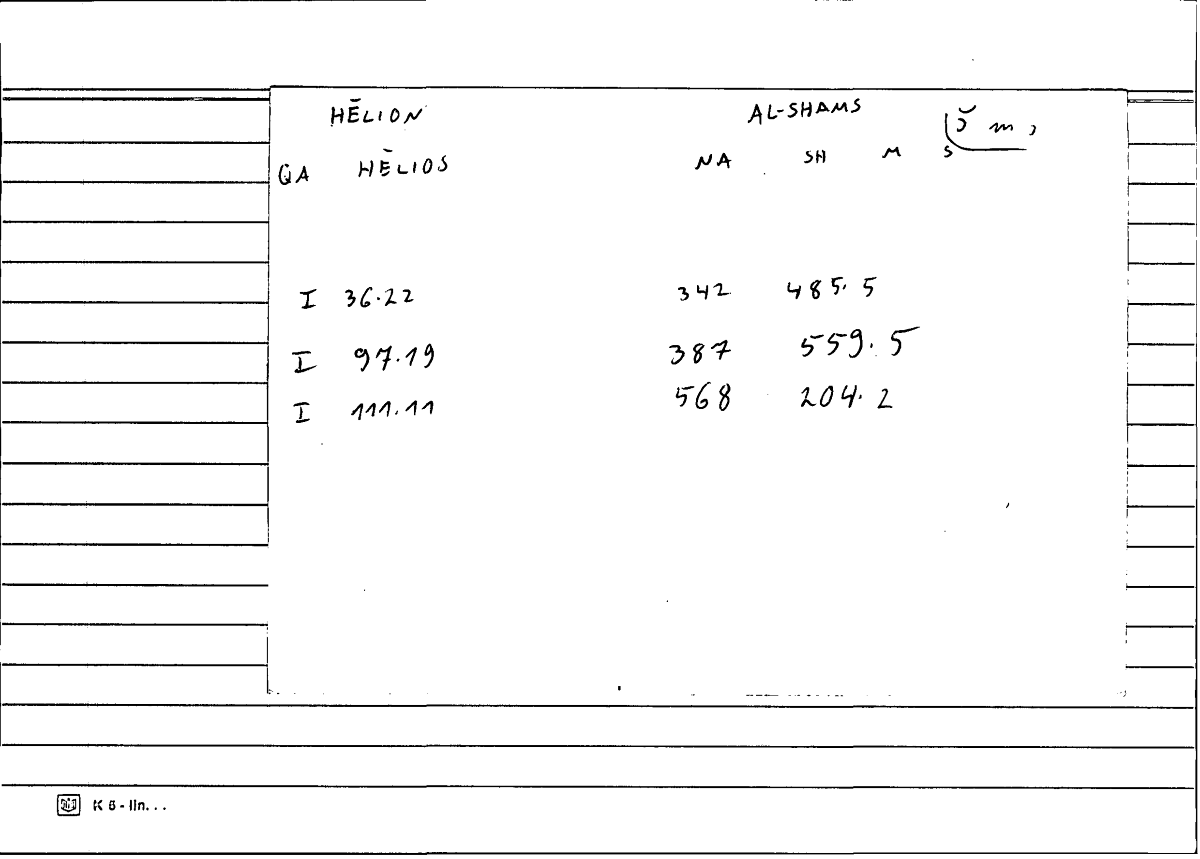 HĒLION AL-SHAMS š m s
QA HĒLIOS NA SH M S
I 36.22 342 485.5
I 97.19 387 559.5
I 111.11 568 204.2
K 6 - lin...